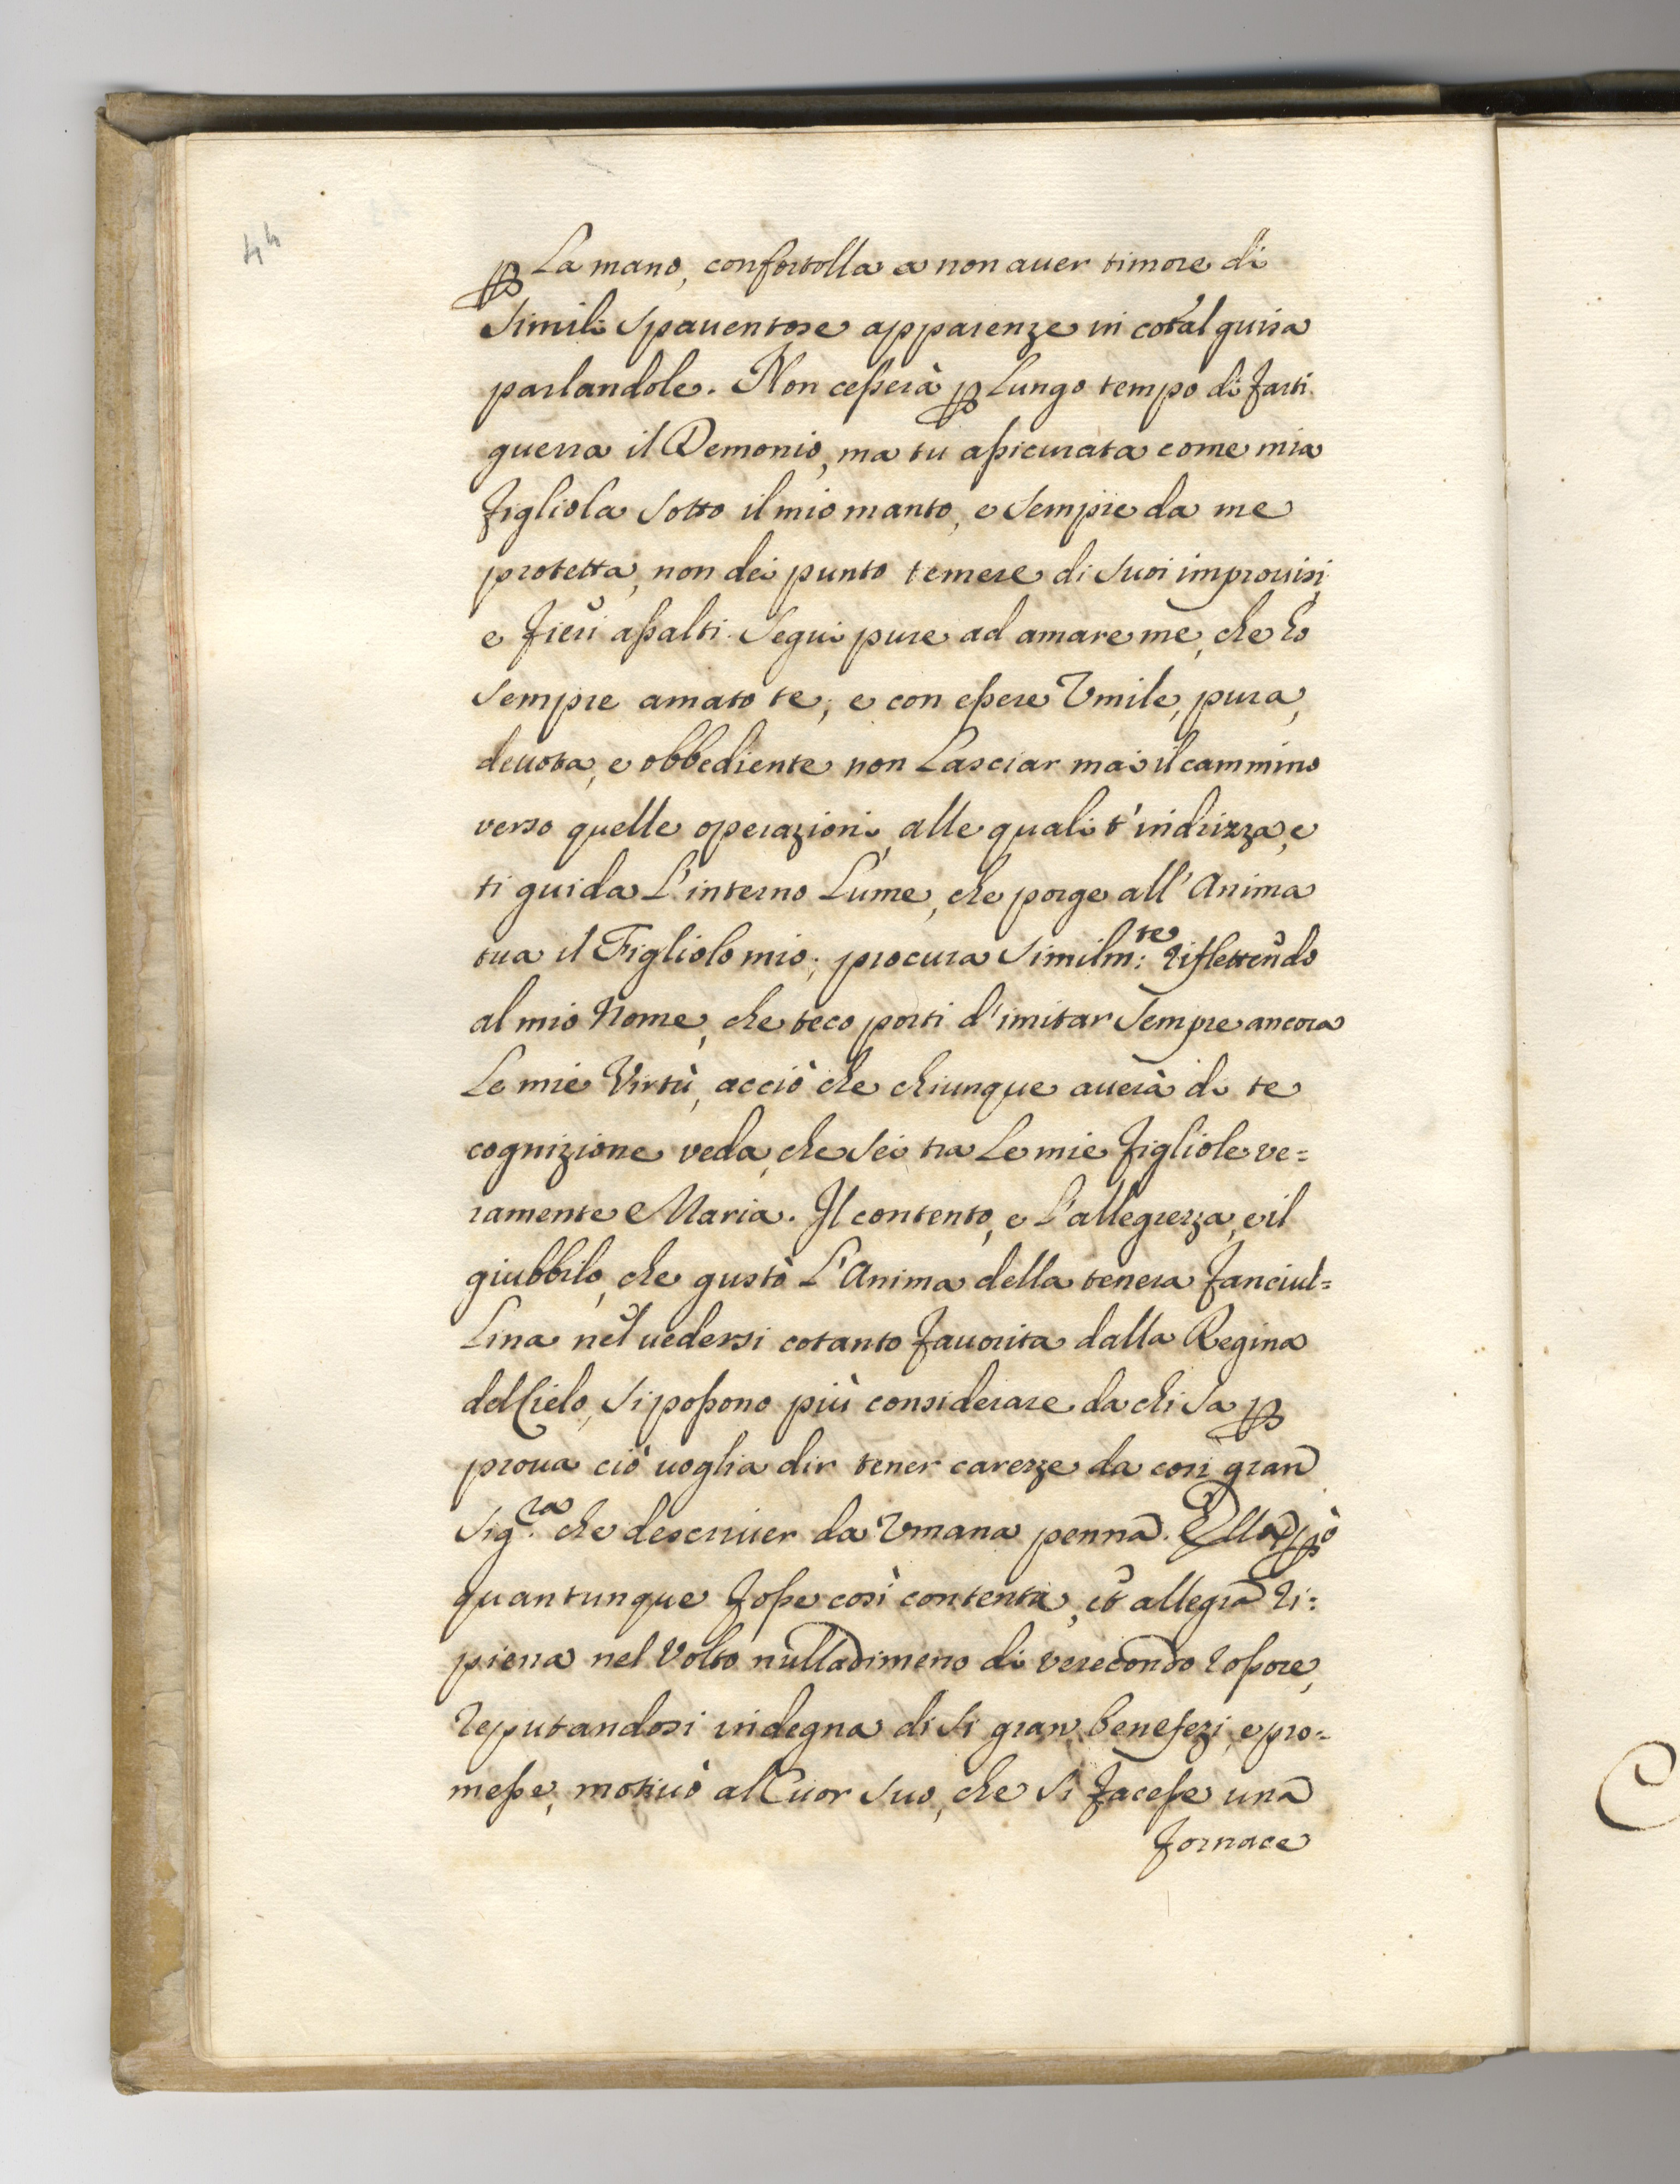 44
ꝑ La mano, confortolla a non auer timore di
Simili Spauentose apparenze in cotal guisa
parlandole. Non ceßerà ꝑ Lungo tempo di farti
guerra il Demonio, ma tu aßicurata come mia
figliola Sotto il mio manto, e Sempre da me
protetta, non dei punto temere di Suoi improuisi,
e fieri aßalti. Segui pure ad amare me, che hò
Sempre amato te; e con eßere Vmile, pura,
deuota, e obbediente non Lasciar mai il cammino
verso quelle operazioni, alle quali t'indrizza, e
ti guida L'interno Lume, che porge all'Anima
tua il Figliolo mio; procura Similm:te riflettendo
al mio Nome, che teco porti d'imitar Sempre ancora
Le mie Virtù, acciò che chiunque auerà di te
cognizione veda, che Sei tra Le mie figliole ve=
ramente Maria. Il contento, e L'allegrezza, e il
giubbilo, che gustò L'Anima della tenera fanciul=
Lina nel uedersi cotanto fauorita dalla Regina
del Cielo, Si poßono più considerare da chi Sa ꝑ
proua ciò uoglia dir tener carezze da così gran
Sig.ra che descriuer da Vmana penna. Ella ꝑò
quantunque foße così contenta, et allegra ri=
piena nel Volto nulladimeno di verecondo roßore,
reputandosi indegna di Si gran benefezi, e pro=
meße, motiuò al Cuor Suo, che Si faceße una
fornace